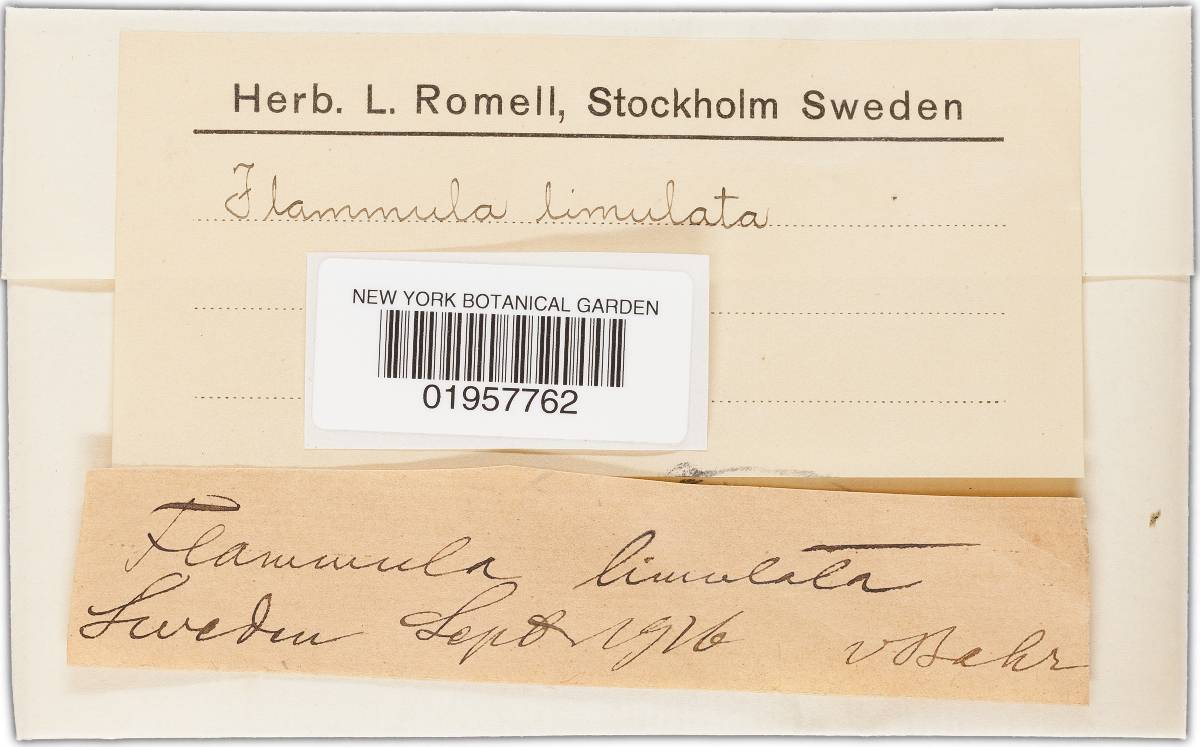 Herb. L. Romell, Stockholm Sweden
Flammula limulata
NEW YORK BOTANICAL GARDEN
01957762
Flammula limulata
Sweden Sept 1916 v Bahr